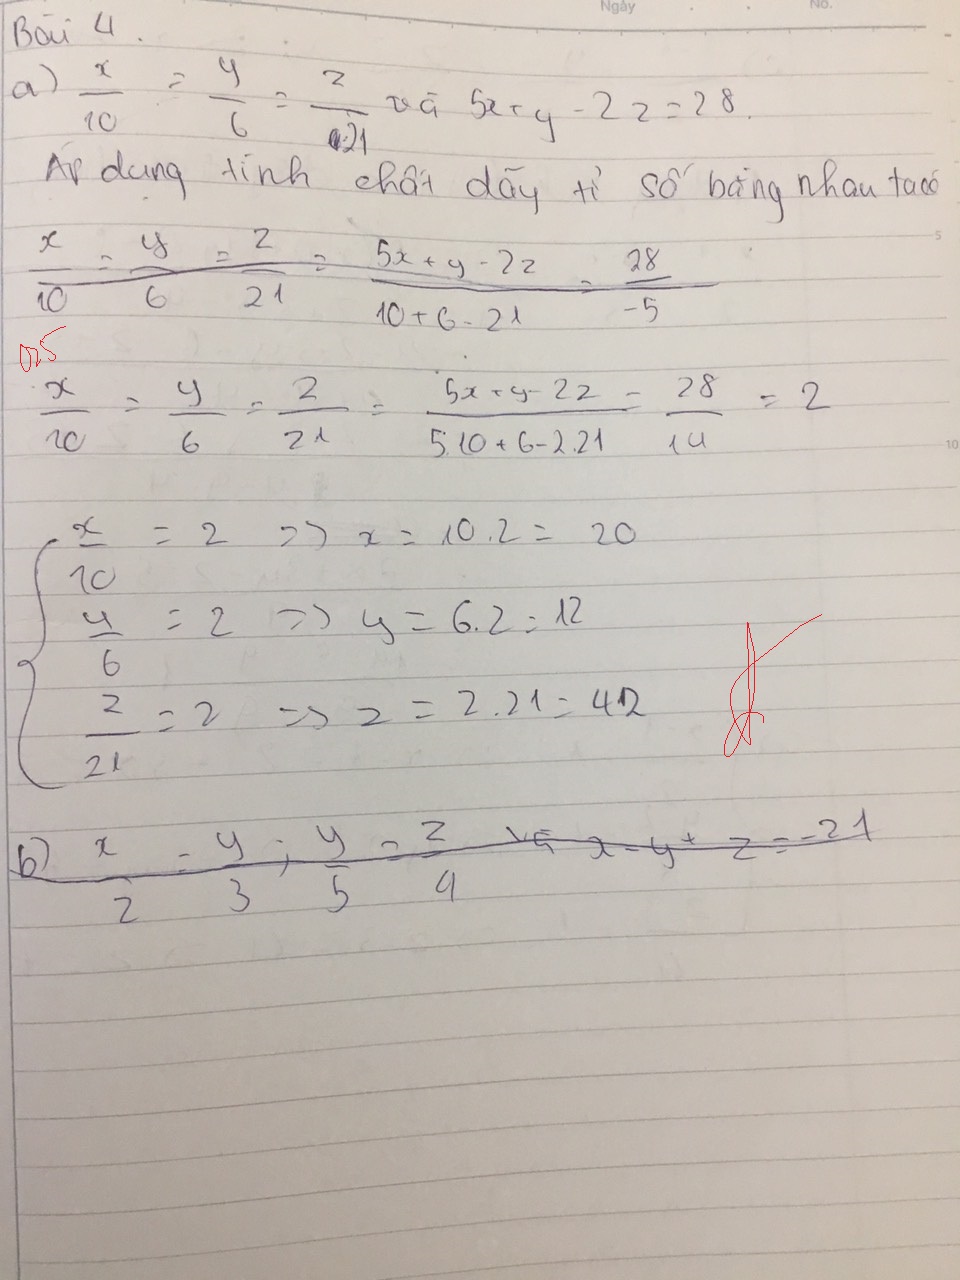 Ngày No.
Bài 4.
a) x/10 = y/6 = z/21 và 5x+y-2z=28.
Áp dụng tính chất dãy tỉ số bằng nhau ta có
x/10 = y/6 = z/21 = (5x+y-2z)/(10+6-21) = 28/-5
5
025
x/10 = y/6 = z/21 = (5x+y-2z)/(5.10+6-2.21) = 28/14 = 2
10
x/10 = 2 => x = 10.2 = 20
y/6 = 2 => y = 6.2 = 12
z/21 = 2 => z = 2.21 = 42
b) x/2 = y/3 ; y/5 = z/4 và x-y+z=-21